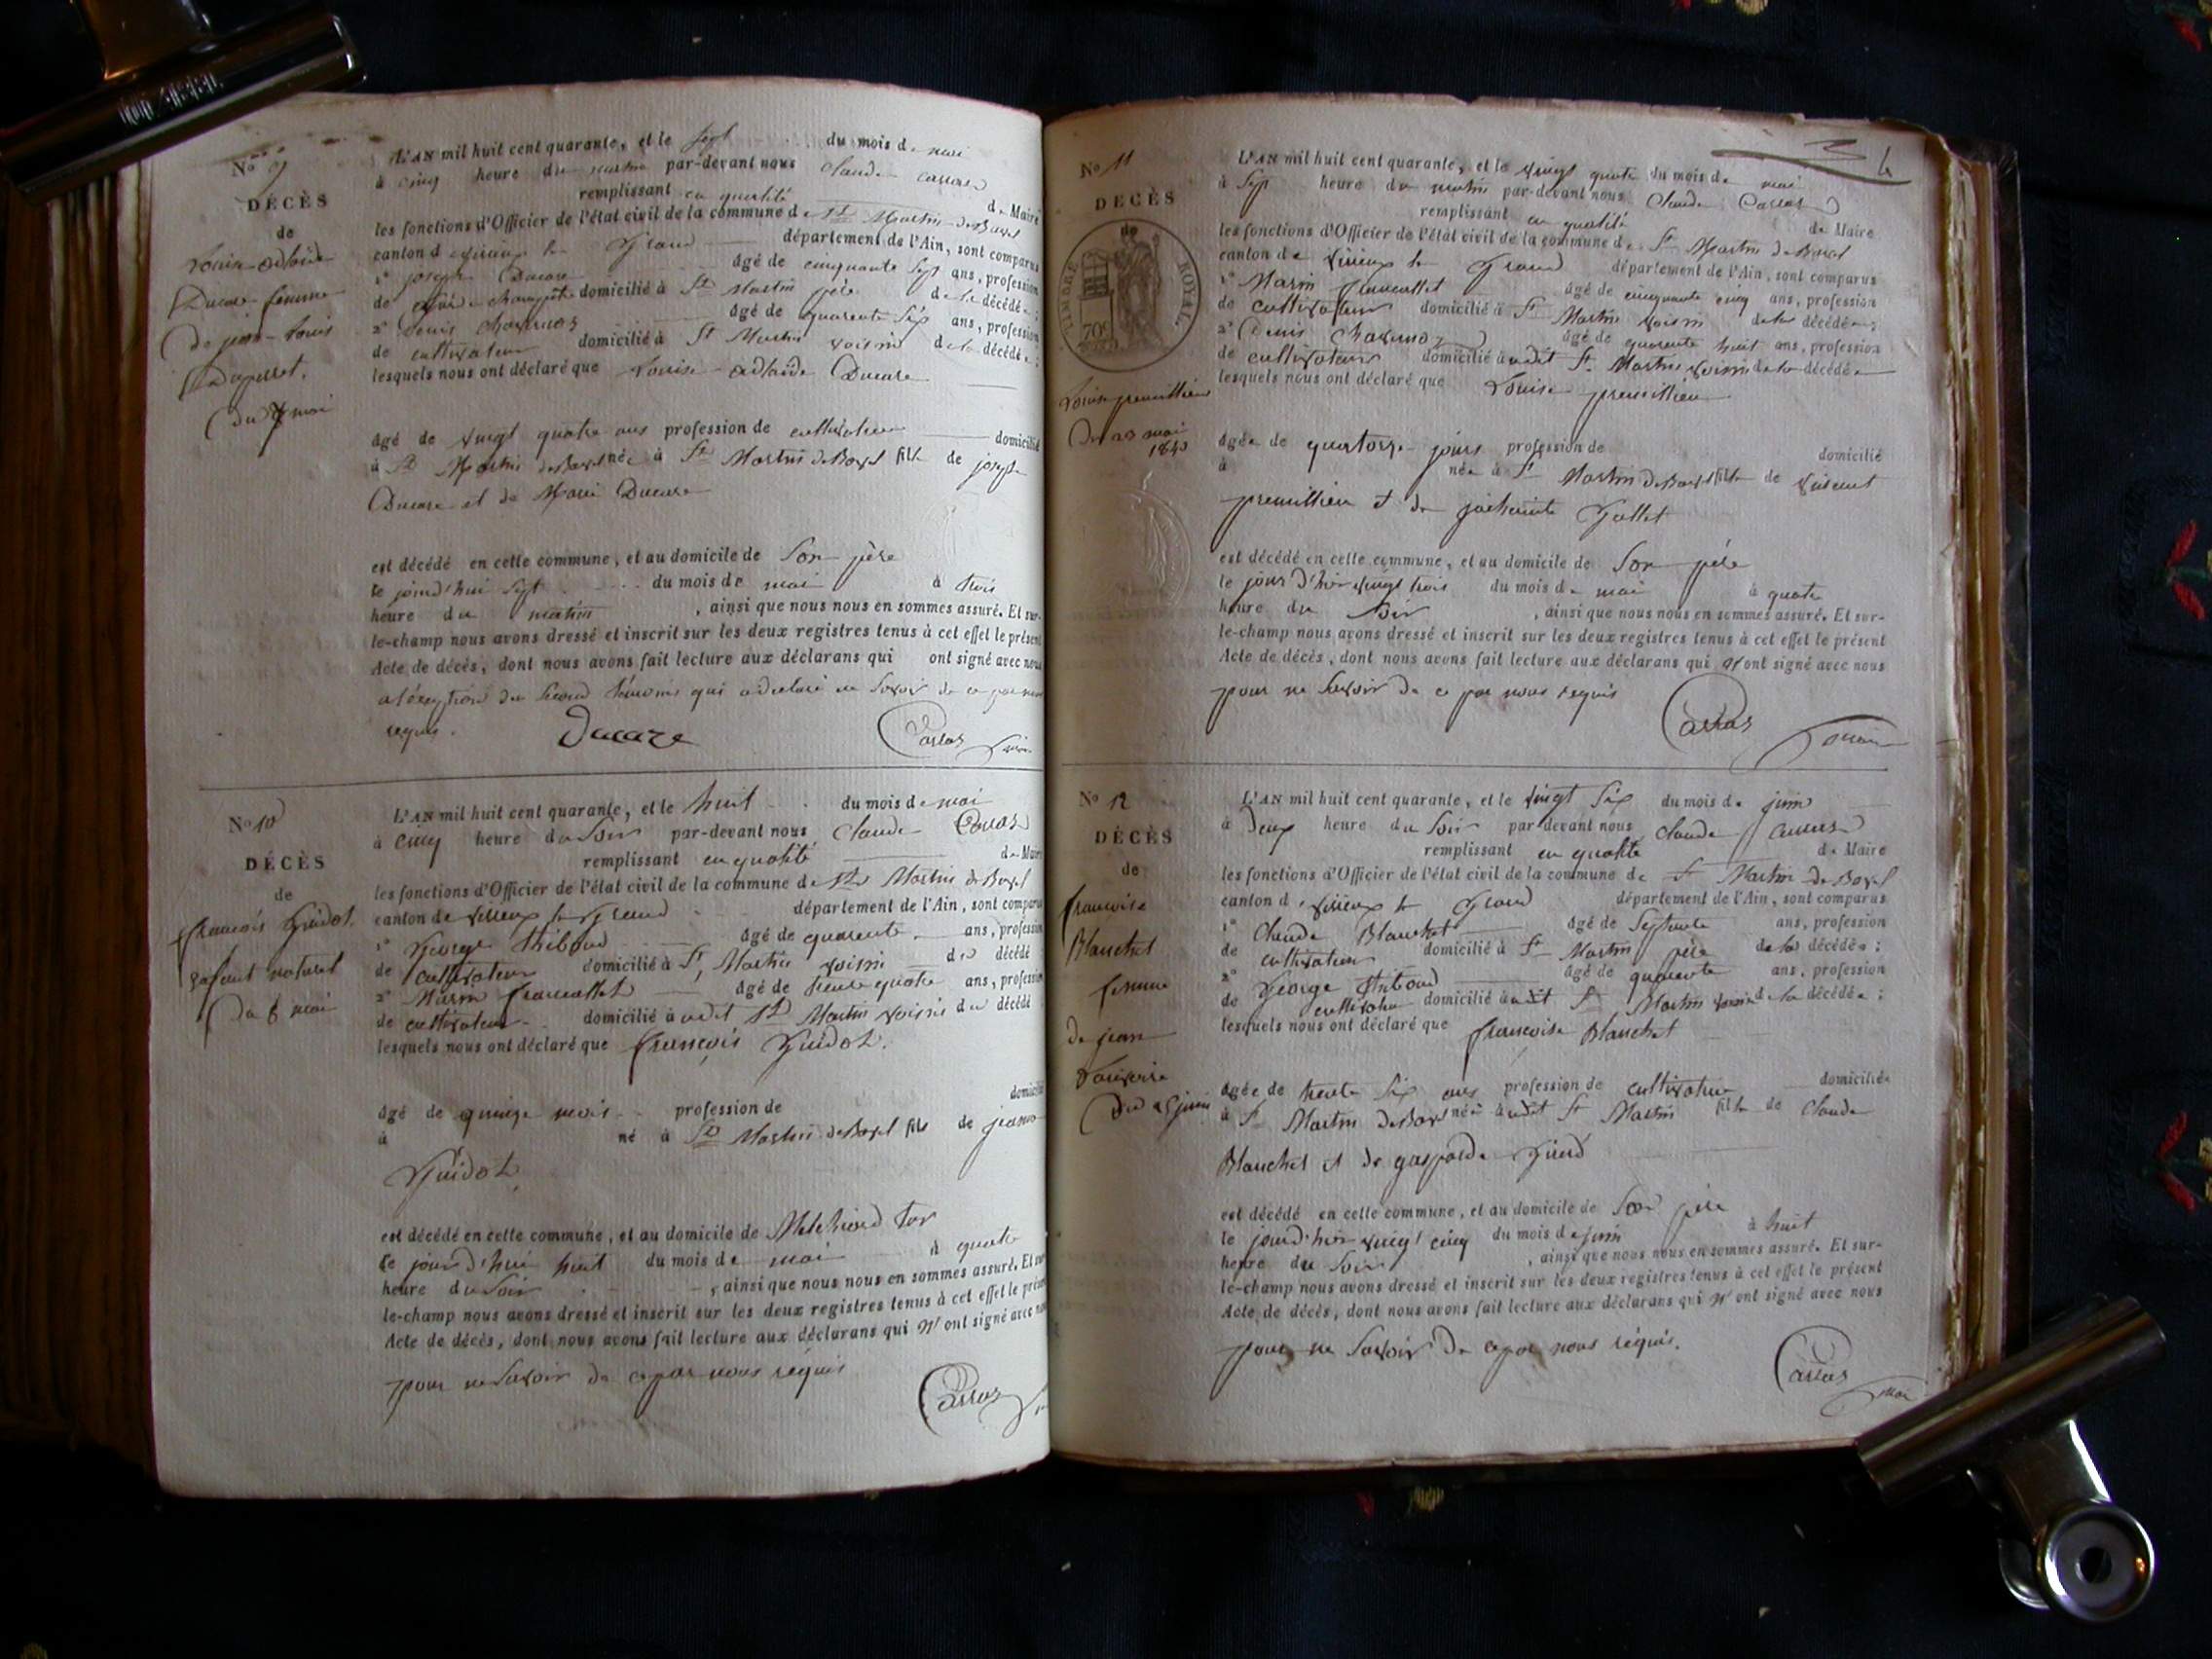 No 9
DÉCÈS
de
Louise adlaïde
Ducare femme
De jean-Louis
Duperret.
Du 7 mai
L'AN mil huit cent quarante, et le sept du mois de mai
à cinq heure du matin par-devant nous Claude Carras
remplissant en qualité de Maire
les fonctions d'Officier de l'état civil de la commune de St Martin de Bavel
canton de virieux le Grand département de l'Ain, sont comparus
1° joseph Ducare âgé de cinquante sept ans, profession
de garde champêtre domicilié à St Martin père de la décédée ;
2° Denis Charvnoz âgé de quarente six ans, profession
de cultivateur domicilié à St Martin voisin de la décédée ;
lesquels nous ont déclaré que Louise adlaïde Ducare
âgé de vingt quatre ans profession de cultivateur domicilié
à St Martin de Bavel née à St Martin de Bavel fille de joseph
Ducare et de Marie Ducare
est décédé en cette commune, et au domicile de son père
le jourd'hui sept du mois de mai à trois
heure du matin , ainsi que nous nous en sommes assuré. Et sur-
le-champ nous avons dressé et inscrit sur les deux registres tenus à cet effet le présent
Acte de décès, dont nous avons fait lecture aux déclarans qui ont signé avec nous
a léxeption du second témoins qui a déclaré ne savoir de ce par nous
requis.
Ducare Carras maire
No 10
DÉCÈS
de
françois Guidot
enfant naturel
Du 8 mai
L'AN mil huit cent quarante, et le huit du mois de mai
à cinq heure du soir par-devant nous Claude Carras
remplissant en qualité de Maire
les fonctions d'Officier de l'état civil de la commune de St Martin de Bavel
canton de virieux le Grand département de l'Ain, sont comparus
1° George thiboud âgé de quarente ans, profession
de cultivateur domicilié à St Martin voisin du décédé
2° Marin francallet âgé de trente quatre ans, profession
de cultivateur domicilié à udit St Martin voisin du décédé
lesquels nous ont déclaré que françois Guidot.
âgé de quinze mois profession de domicilié
à né à St Martin de Bavel fils de jeanne
Guidot
est décédé en cette commune, et au domicile de Melchiord
le jourd'hui huit du mois de mai à quatre
heure du soir , ainsi que nous nous en sommes assuré. Et sur-
le-champ nous avons dressé et inscrit sur les deux registres tenus à cet effet le présent
Acte de décès, dont nous avons fait lecture aux déclarans qui n'ont signé avec nous
pour ne savoir de ce par nous réquis
Carras
4
No 11
DÉCÈS
de
TIMBRE ROYAL.
70c
Louise premillieu
Du 23 mai
1840
L'AN mil huit cent quarante, et le vingt quatre du mois de mai
à sept heure du matin par-devant nous Claude Carras
remplissant en qualité de Maire
les fonctions d'Officier de l'état civil de la commune de St Martin de Bavel
canton de virieux le Grand département de l'Ain, sont comparus
1° Marin francallet âgé de cinquante cinq ans, profession
de cultivateur domicilié à St Martin voisin de la décédée ;
2° Denis Charvnoz âgé de quarente huit ans, profession
de cultivateur domicilié à udit St Martin voisin de la décédée
lesquels nous ont déclaré que Louise premillieu
âgée de quatorze jours profession de domicilié
à née à St Martin de Bavel fille de vincent
premillieu et de Gallet
est décédé en cette commune, et au domicile de son père
le jour d'hier vingt trois du mois de mai à quatre
heure du soir , ainsi que nous nous en sommes assuré. Et sur-
le-champ nous avons dressé et inscrit sur les deux registres tenus à cet effet le présent
Acte de décès, dont nous avons fait lecture aux déclarans qui n'ont signé avec nous
pour ne savoir de ce par nous requis
Carras maire
No 12
DÉCÈS
de
francoise
Blanchet
femme
de jean
Du 25 juin
L'AN mil huit cent quarante, et le vingt six du mois de juin
à Deux heure du soir par-devant nous Claude Carras
remplissant en qualité de Maire
les fonctions d'Officier de l'état civil de la commune de St Martin de Bavel
canton d virieux le Grand département de l'Ain, sont comparus
1° Claude Blanchet âgé de septante ans, profession
de cultivateur domicilié à St Martin père de la décédée ;
2° George thiboud âgé de quarente ans, profession
de cultivateur domicilié à udit St Martin voisin de la décédée ;
lesquels nous ont déclaré que francoise Blanchet
âgée de trente six ans profession de cultivateur domiciliée
à St Martin de Bavel née à udit St Martin fille de Claude
Blanchet et de gasparde
est décédé en cette commune, et au domicile de son père
le jourd'hier vingt cinq du mois de juin à huit
heure du soir , ainsi que nous nous en sommes assuré. Et sur-
le-champ nous avons dressé et inscrit sur les deux registres tenus à cet effet le présent
Acte de décès, dont nous avons fait lecture aux déclarans qui n'ont signé avec nous
pour ne savoir de ce par nous réquis.
Carras maire